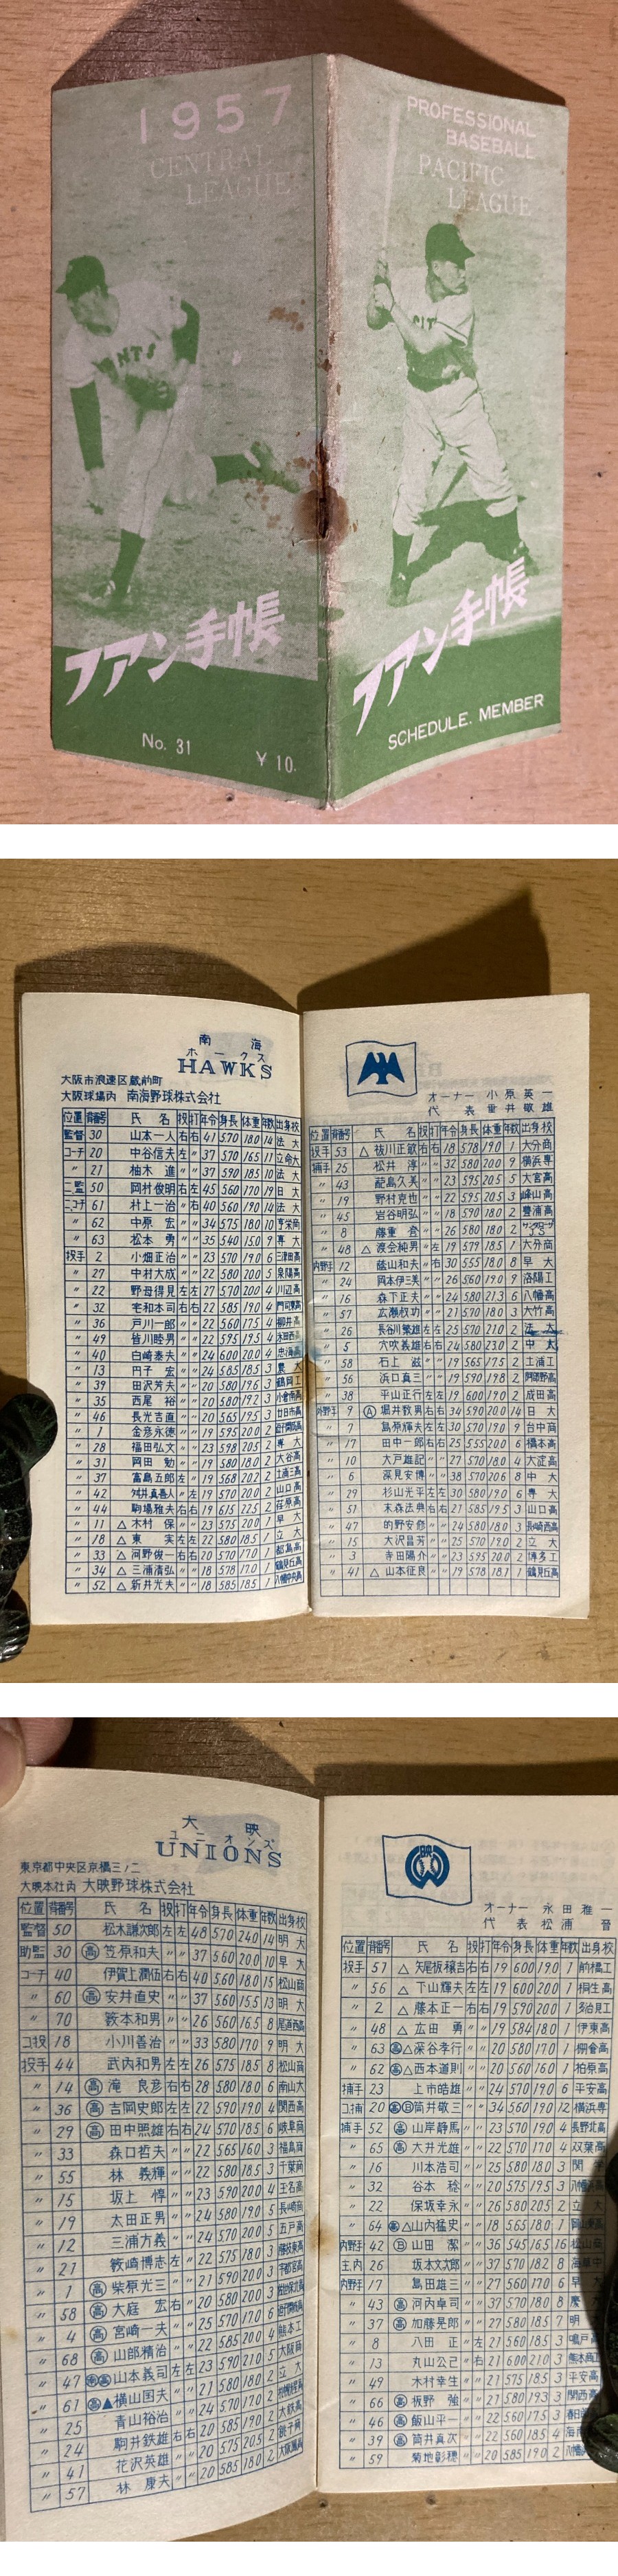 1957
CENTRAL
LEAGUE
ファン手帳
No. 31
¥10.
PROFESSIONAL
BASEBALL
PACIFIC
LEAGUE
ファン手帳
SCHEDULE. MEMBER
南海
ホークス
HAWKS
大阪市浪速区蔵前町
大阪球場内 南海野球株式会社
位置 背番号 氏名 投 打 年令 身長 体重 年数 出身校
監督 30 山本一人 右 右 41 570 18.0 14 法大
コーチ 20 中谷信夫 左 〃 37 570 16.5 11 立命大
〃 21 柚木進 〃 〃 37 590 18.5 10 法大
二監 50 岡村俊明 右 左 45 560 17.0 19 日大
二コチ 61 村上一治 〃 右 40 560 19.0 14 法大
〃 62 中原宏 〃 〃 34 575 18.0 10 享栄商
〃 63 松本勇 〃 〃 35 540 15.0 9 専大
投手 2 小畑正治 〃 〃 23 570 19.0 6
〃 27 中村大成 〃 〃 22 580 20.0 5 泉陽高
〃 22 野母得見 左 左 27 570 20.0 4 川辺高
〃 32 宅和本司 右 右 22 585 19.0 4 門司東高
〃 36 戸川一郎 〃 〃 22 560 17.5 4 柳井高
〃 49 皆川睦男 〃 〃 22 595 19.5 4 米沢西高
〃 40 白崎泰夫 〃 〃 24 600 20.0 4
〃 13 円子宏 〃 〃 24 585 18.5 3 農大
〃 39 田沢芳夫 〃 〃 20 580 19.6 3 鶴岡工
〃 35 西尾裕 〃 〃 20 580 19.2 3 小倉南高
〃 46 長光吉直 〃 〃 20 565 19.5 3 廿日市高
〃 1 金彦永徳 〃 〃 19 595 20.0 2
〃 28 福田弘文 〃 〃 23 598 20.5 2 専大
〃 31 岡田勉 〃 〃 19 580 18.0 2 大谷高
〃 37 富島五郎 左 〃 19 568 20.2 2 土浦三高
〃 42 舛井真喜人 〃 左 19 570 20.0 2 山口高
〃 44 駒場雅夫 右 右 19 615 22.5 2 荏原高
〃 11 △ 木村保 〃 〃 23 575 20.0 1 早大
〃 18 △ 東実 左 左 22 580 18.5 1 立大
〃 33 △ 河野俊一 右 右 20 570 17.0 1 都島高
〃 34 △ 三浦清弘 〃 〃 18 578 17.0 1 鶴見丘高
〃 52 △ 新井光夫 〃 〃 18 585 18.5 1 八幡中央高
オーナー 小原英一
代表 垂井敬雄
位置 背番号 氏名 投 打 年令 身長 体重 年数 出身校
投手 53 △ 祓川正敏 右 右 18 578 19.0 1 大分商
捕手 25 松井淳 〃 〃 32 580 20.0 9 横浜専
〃 43 蓜島久美 〃 〃 23 595 20.5 5 大宮高
〃 19 野村克也 〃 〃 22 595 20.5 3 峰山高
〃 45 岩谷明弘 〃 〃 19 590 18.0 2 豊浦高
〃 8 藤重登 〃 〃 26 580 18.0 2
〃 48 △ 渡会純男 〃 左 19 579 18.5 1 大分商
内野手 12 蔭山和夫 〃 右 30 555 18.0 8 早大
〃 24 岡本伊三美 〃 〃 26 560 19.0 9 洛陽工
〃 16 森下正夫 〃 〃 24 580 21.3 6 八幡高
〃 57 広瀬叔功 〃 〃 21 570 18.0 3 大竹高
〃 26 長谷川繁雄 左 左 25 570 21.0 2 法大
〃 5 穴吹義雄 右 右 24 580 23.0 2 中大
〃 58 石上滋 〃 〃 19 565 17.5 2 土浦工
〃 56 浜口真三 〃 〃 19 590 19.8 2
〃 38 平山正行 左 左 19 600 19.0 2 成田高
外野手 9 Ⓐ 堀井数男 右 右 34 590 20.0 14 日大
〃 7 島原輝夫 左 左 30 570 19.0 9 台中商
〃 17 田中一郎 右 右 25 555 20.0 6 橋本高
〃 10 大戸雄記 〃 〃 27 570 18.0 4 大淀高
〃 6 深見安博 〃 〃 38 570 20.6 8 中大
〃 29 杉山光平 左 左 30 580 19.0 6 専大
〃 51 末森法典 右 右 21 585 19.5 3 山口高
〃 47 的野安修 〃 〃 24 580 18.0 3 長崎西高
〃 15 大沢昌芳 〃 〃 25 570 19.0 2 立大
〃 3 寺田陽介 〃 〃 23 595 20.0 2 博多工
〃 41 △ 山本征良 〃 〃 19 578 18.1 1 鶴見丘高
大映
ユニオンズ
UNIONS
東京都中央区京橋三ノ二
大映本社内 大映野球株式会社
位置 背番号 氏名 投 打 年令 身長 体重 年数 出身校
監督 50 松木謙次郎 左 左 48 570 24.0 14 明大
助監 30 高 笠原和夫 〃 〃 37 5.60 20.0 10 早大
コーチ 40 伊賀上潤伍 右 右 40 5.60 18.0 15 松山商
〃 60 高 安井直史 〃 〃 37 5.60 15.5 13 明大
〃 70 籔本和男 〃 〃 26 560 16.5 8 尾道西高
コ投 18 小川善治 〃 〃 33 580 17.0 9 明大
投手 44 武内和男 左 左 26 575 18.5 8 松山商
〃 14 高 滝良彦 右 右 28 580 18.0 6 南山大
〃 36 高 吉岡史郎 左 左 22 590 19.0 4 関西高
〃 29 高 田中照雄 右 右 24 570 18.5 6 岐阜商
〃 33 森口哲夫 〃 〃 22 565 16.0 3 福島商
〃 55 林義輝 〃 〃 22 580 18.5 3 千葉商
〃 15 坂上惇 〃 〃 23 590 20.0 4 玉名高
〃 19 太田正男 〃 〃 24 580 19.0 5 長崎商
〃 12 三浦方義 〃 〃 24 570 20.0 5 五戸高
〃 21 籔崎博志 左 〃 22 575 18.0 3
〃 1 高 柴原光三 〃 〃 21 590 20.0 3 宇都宮高
〃 58 高 大庭宏 右 〃 20 580 20.0 3
〃 4 高 宮崎一夫 〃 〃 25 570 17.0 6
〃 68 高 山部精治 〃 〃 22 585 20.0 4 熊本工
〃 47 山本義司 左 左 23 590 21.0 5 大阪商
〃 61 ▲ 横山国夫 〃 〃 21 580 18.0 2 立大
〃 25 青山裕治 〃 〃 24 570 17.0 2
〃 24 駒井鉄雄 右 右 20 585 19.0 2 大鉄高
〃 41 花沢英雄 〃 〃 20 575 20.5 2 銚子商
〃 57 林康夫 〃 〃 20 585 18.0 2
オーナー 永田雅一
代表 松浦晋
位置 背番号 氏名 投 打 年令 身長 体重 年数 出身校
投手 51 △ 矢尾板穣吉 右 右 19 600 19.0 1 前橋工
〃 56 △ 下山輝夫 左 左 19 600 20.0 1 桐生高
〃 2 △ 藤本正一 右 右 19 590 20.0 1 多治見工
〃 48 △ 広田勇 〃 〃 19 584 18.0 1 伊東高
〃 63 高△ 深谷孝行 〃 〃 20 580 17.0 1 棚倉高
〃 62 高△ 西本道則 〃 〃 20 560 16.0 1 柏原高
捕手 23 上市皓雄 〃 〃 24 570 19.0 6 平安高
コ捕 20 高Ⓑ 筒井敬三 〃 〃 34 560 19.0 12 横浜専
捕手 52 高 山岸静馬 〃 〃 23 570 19.0 4 長野北高
〃 65 高 大井光雄 〃 〃 22 570 17.0 4 双葉高
〃 16 川本浩司 〃 〃 25 580 18.0 3 関学
〃 32 谷本稔 〃 〃 20 575 19.5 3
〃 22 保坂幸永 〃 〃 26 580 20.5 2 立大
〃 64 高△ 山内猛史 〃 〃 18 565 18.0 1
内野手 42 Ⓑ 山田潔 〃 〃 36 545 16.5 16 松山商
主.内 26 坂本文次郎 〃 〃 37 570 18.2 8 海草中
内野手 17 島田雄三 〃 〃 27 560 17.0 6 早
〃 43 高 河内卓司 〃 〃 37 570 18.0 8 慶
〃 37 高 加藤晃郎 〃 〃 27 580 18.5 7 明
〃 8 八田正 〃 左 21 560 18.5 3 鳴戸
〃 13 丸山公己 〃 右 21 600 21.0 3
〃 49 木村幸生 〃 〃 21 575 18.5 3 平安高
〃 66 高 板野強 〃 〃 21 580 19.3 3 関西高
〃 46 高 飯山平一 〃 〃 22 560 17.5 3
〃 39 高 筒井真次 〃 〃 22 560 18.5 4
〃 59 菊地彰穂 〃 〃 20 585 19.0 2